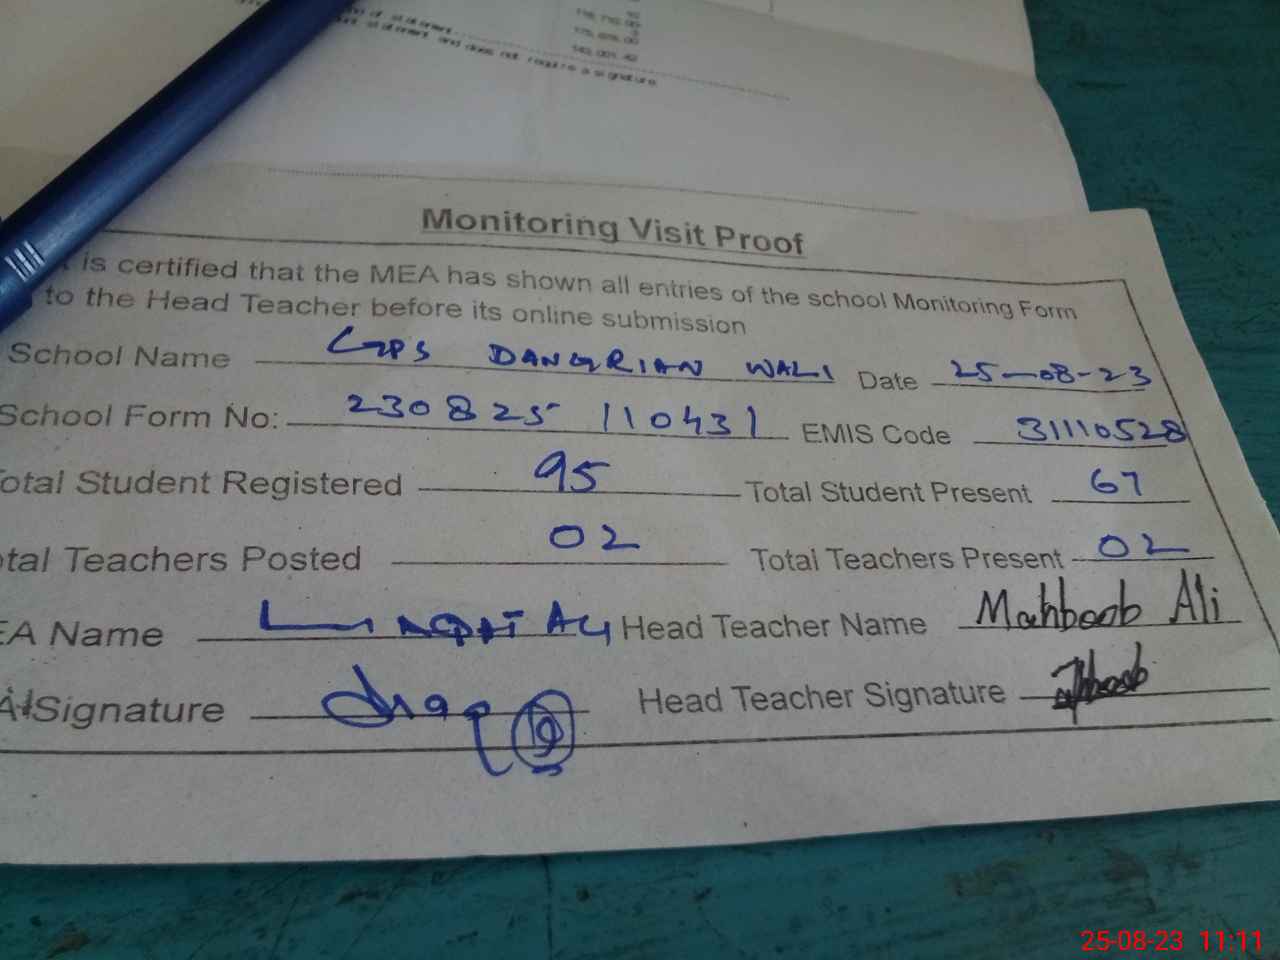 175,678.00
143,001.42
statement and does not require a signature
Monitoring Visit Proof
is certified that the MEA has shown all entries of the school Monitoring Form
to the Head Teacher before its online submission
School Name GPS DANGRIAN WALI Date 25-08-23
School Form No: 230825 110431 EMIS Code 31110528
otal Student Registered 95 Total Student Present 67
tal Teachers Posted 02 Total Teachers Present 02
EA Name ALI Head Teacher Name Mahboob Ali
A Signature Head Teacher Signature
25-08-23 11:11